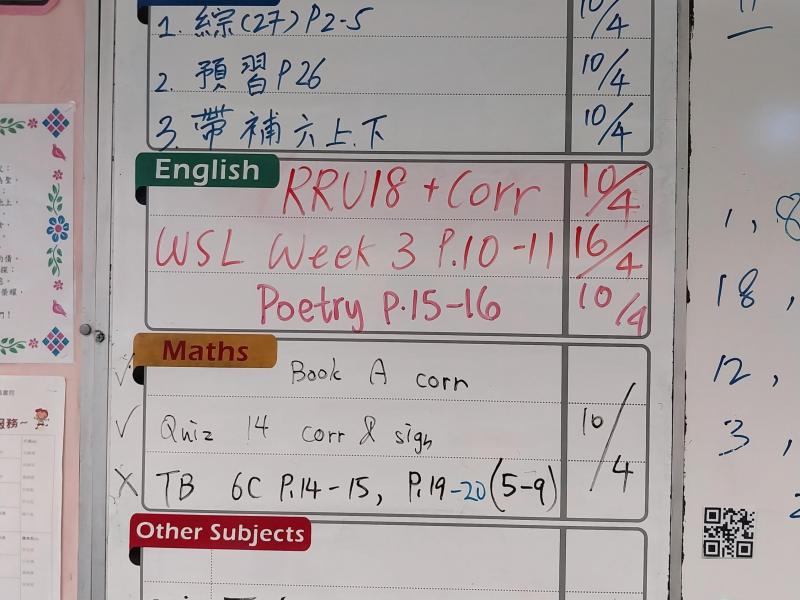 1. 綜(27)P2-5 10/4
2. 預習P26 10/4
3. 帶補六上.下 10/4
English
RRU18 + Corr 10/4
WSL Week 3 P.10-11 16/4
Poetry P.15-16 10/4
Maths
✓ Book A corr
✓ Quiz 14 corr & sign 10/4
X TB 6C P.14-15, P.19-20 (5-9)
Other Subjects
1, 8
18,
12,
3,